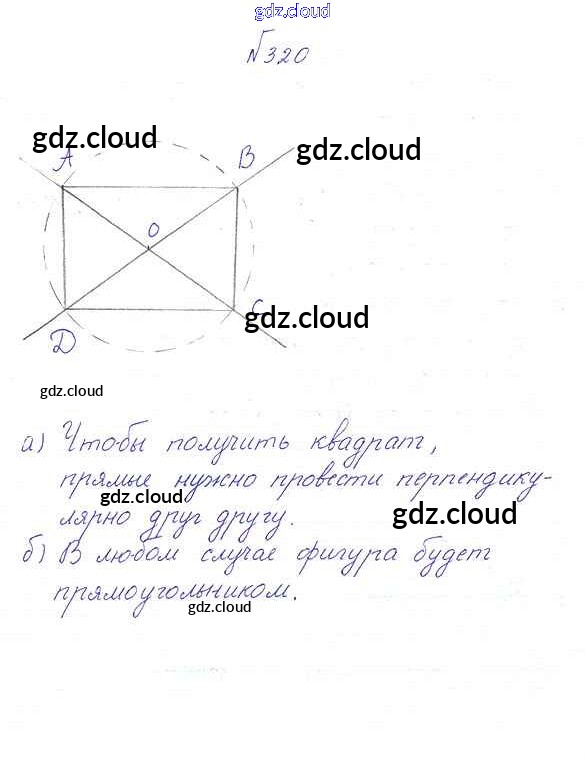 gdz.cloud
№320
gdz.cloud
gdz.cloud
А В
О
С
gdz.cloud
D
gdz.cloud
а) Чтобы получить квадрат,
прямые нужно провести перпендику-
gdz.cloud
gdz.cloud
лярно друг другу.
б) В любом случае фигура будет
прямоугольником.
gdz.cloud